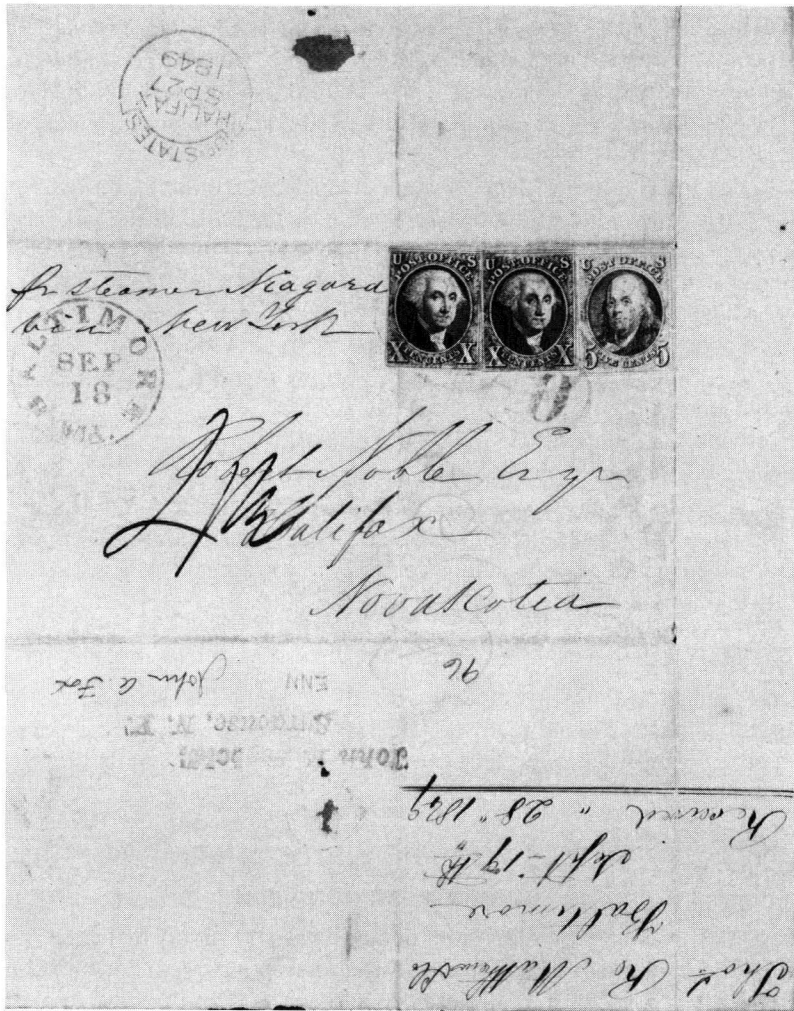 U.STATES
HALIFAX
SP 27
1849
Pr steamer Niagara
via New York
BALTIMORE
SEP
18
Md.
U S
POST OFFICE
X TEN CENTS X
U S
POST OFFICE
X TEN CENTS X
U S
POST OFFICE
5 FIVE CENTS 5
Robert Noble Esqr
Halifax
Novascotia
96
John A Fox
John
Thos R Matthews
Baltimore
Sept. 17th
Received " 28" 1849